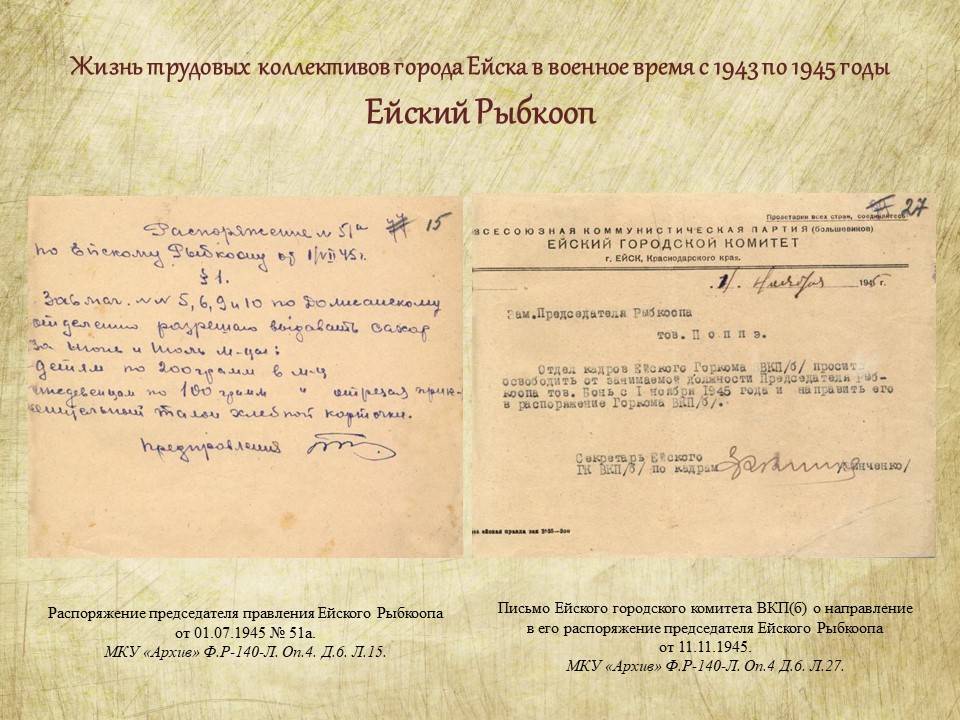 Жизнь трудовых коллективов города Ейска в военное время с 1943 по 1945 годы
Ейский Рыбкооп
15
Распоряжение № 51а
по Ейскому Рыбкоопу от 1/VII 45 г.
§ 1.
Завмаг. №№ 5, 6, 9 и 10 по
отделению разрешаю выдавать сахар
за июнь и июль м-цы:
детям по 200 грамм в м-ц
иждевенцам по 100 грамм " отрезая
талон хлебной карточки.
Предправления
27
Пролетарии всех стран, соединяйтесь
ВСЕСОЮЗНАЯ КОММУНИСТИЧЕСКАЯ ПАРТИЯ (большевиков)
ЕЙСКИЙ ГОРОДСКОЙ КОМИТЕТ
г. ЕЙСК, Краснодарского края.
11. Ноября 1945 г.
Зам.Председателя Рыбкоопа
тов. П о п п э.
Отдел кадров Ейского Горкома ВКП/б/ просит
освободить от занимаемой должности Председателя рыб-
коопа тов. Бонь с I ноября 1945 года и направить его
в распоряжение Горкома ВКП/б/.-
Секретарь Ейского
ГК ВКП/б/ по кадрам
ейская правда зак
Распоряжение председателя правления Ейского Рыбкоопа
от 01.07.1945 № 51а.
МКУ «Архив» Ф.Р-140-Л. Оп.4. Д.6. Л.15.
Письмо Ейского городского комитета ВКП(б) о направление
в его распоряжение председателя Ейского Рыбкоопа
от 11.11.1945.
МКУ «Архив» Ф.Р-140-Л. Оп.4 Д.6. Л.27.